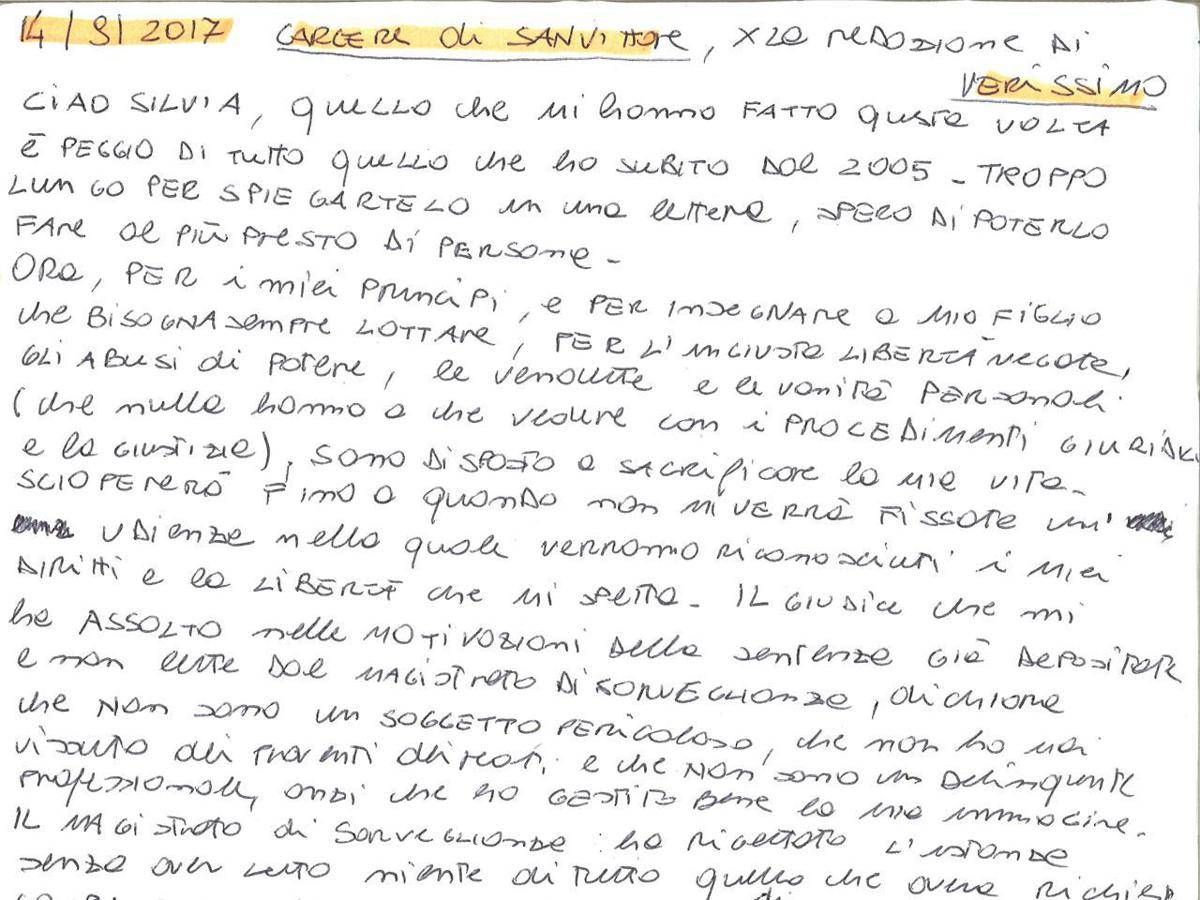 14/9/2017 CARCERE di SANVITTORE, X La REDAZIONE DI
VERISSIMO
CIAO SILVIA, quello che mi hanno FATTO questa VOLTA
È PEGGIO DI TUTTO quello che ho SUBITO DAL 2005 - TROPPO
LUNGO PER SPIEGARTELO in una lettera, SPERO DI POTERLO
FARE al PIÙ PRESTO DI PERSONA -
ORA, PER i miei PRINCIPI, e PER INSEGNARE a MIO FIGLIO
che BISOGNA SEMPRE LOTTARE, PER L'INGIUSTA LIBERTÀ NEGATA,
GLI ABUSI di POTERE, le vendette e le vanità PERSONALI
(che nulla hanno a che vedere con i PROCEDIMENTI GIURIDICI
e la GIUSTIZIA), SONO DISPOSTO a SACRIFICARE la MIA VITA -
SCIOPERERÒ FINO a quando non MI VERRÀ FISSATA UN'
UDIENZA nella quale verranno RICONOSCIUTI i MIEI
DIRITTI e la LIBERTÀ che MI SPETTA - IL GIUDICE che mi
ha ASSOLTO nelle MOTIVAZIONI Della sentenza GIÀ DEPOSITATE
e non lette DAL MAGISTRATO DI SORVEGLIANZA, dichiara
che NON sono un SOGGETTO PERICOLOSO, che non ho mai
vissuto dei PROVENTI dei reati, e che NON sono un Delinquente
PROFESSIONALE, anzi che ho GESTITO BENE la mia immagine.
IL MAGISTRATO di SORVEGLIANZA ha RIGETTATO L'istanza
senza aver letto niente di TUTTO quello che aveva